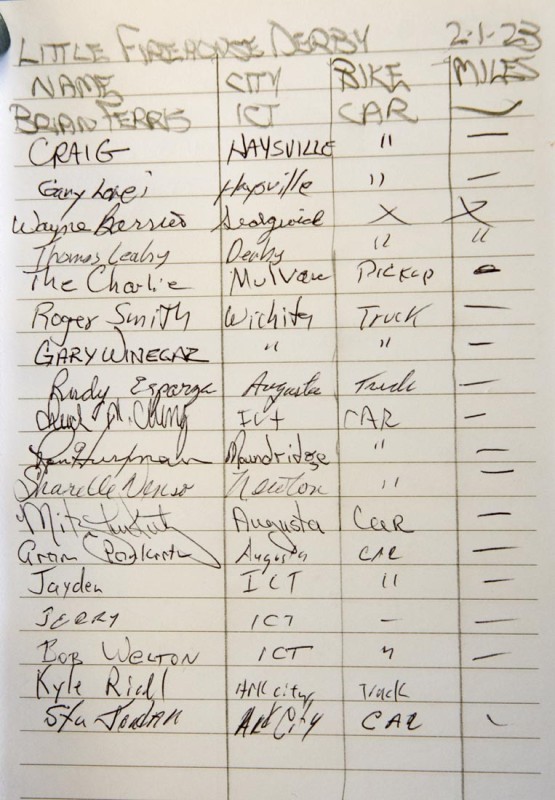 LITTLE FIREHOUSE DERBY 2-1-23
NAME CITY BIKE MILES
BRIAN FERRIS ICT CAR —
CRAIG HAYSVILLE " —
Gary Haysville " —
Wayne Sedgwick X X
Thomas Leahy Derby " "
The Charlie Mulvane Pickup -
Roger Smith Wichita Truck —
GARY WINEGAR " " —
Rudy Esparza Augusta Truck —
ICT CAR —
Moundridge " —
Sharelle Newton " —
Augusta CAR —
Augusta CAR —
Jayden ICT " —
JERRY ICT - —
BOB WELTON ICT " —
Kyle Riedl Ark city Truck
Stu Jordan Ark City CAR -